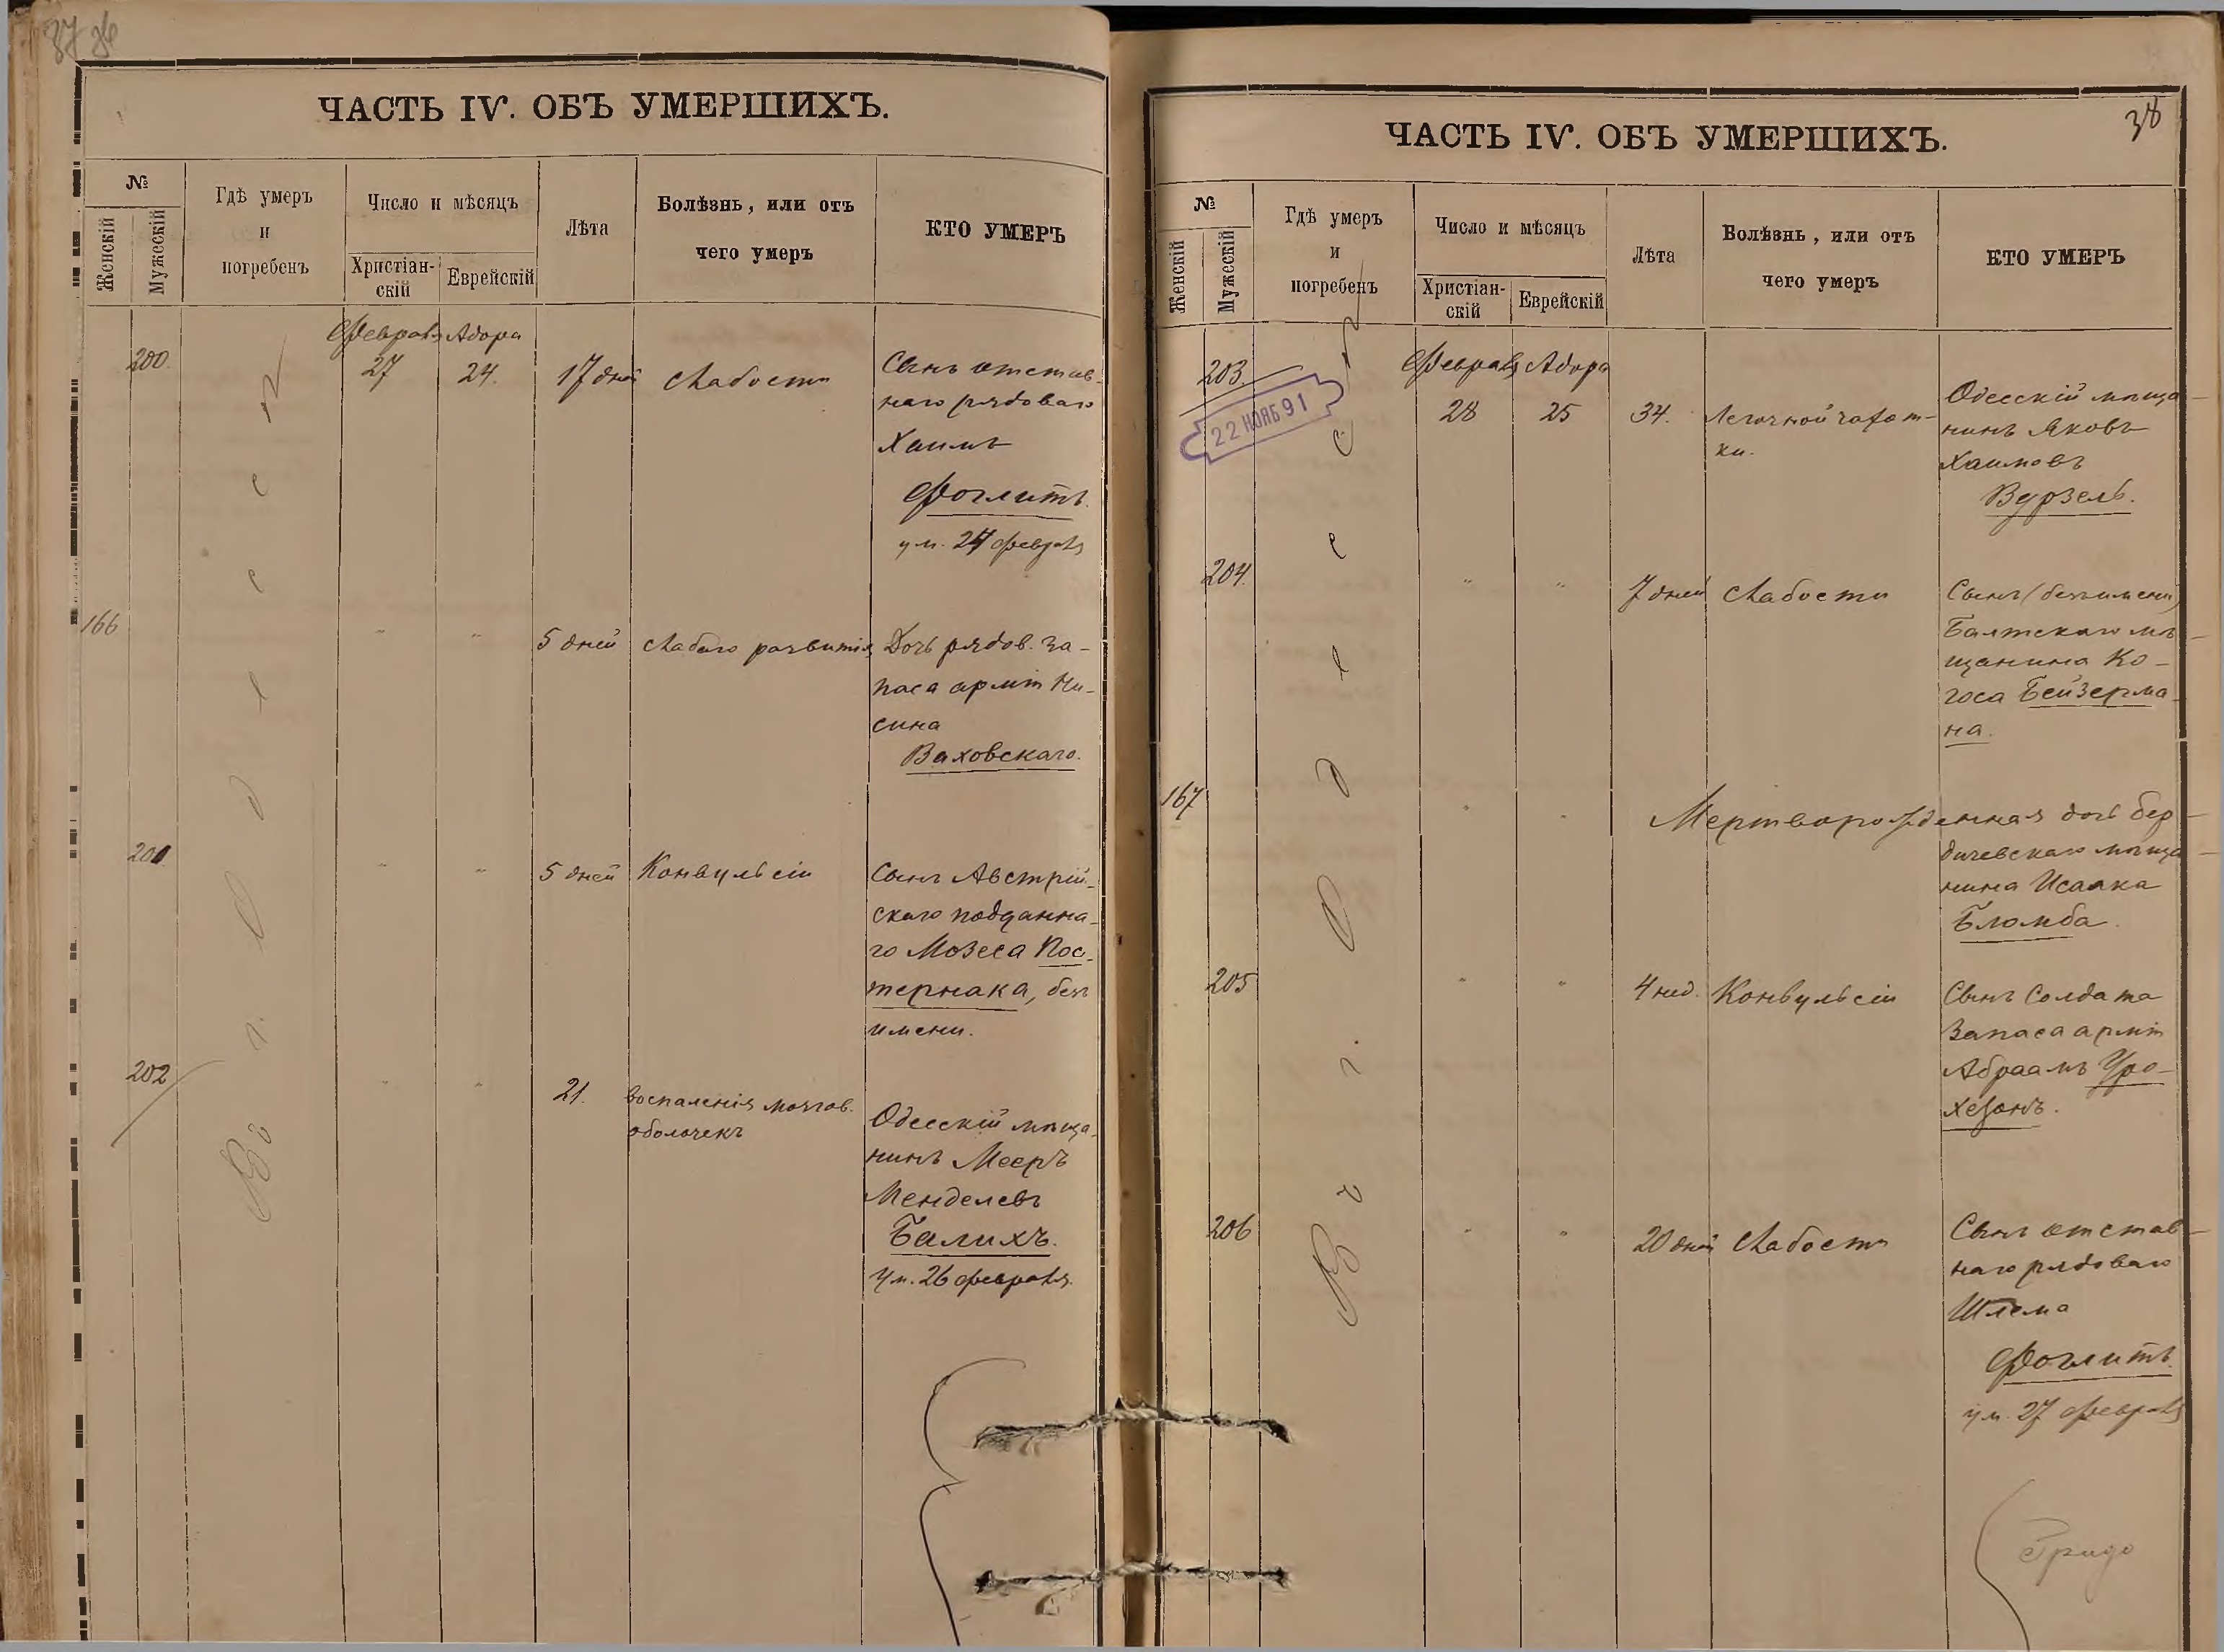 37 36
ЧАСТЬ IV. ОБЪ УМЕРШИХЪ.
№
Женскій
Мужескій
Гдѣ умеръ
и
погребенъ
Число и мѣсяцъ
Христіан-
скій
Еврейскій
Лѣта
Болѣзнь, или отъ
чего умеръ
КТО УМЕРЪ
Въ г. Одессѣ
Февраля Адора
200. 27 24. 17 дней слабости
Сынъ отстав-
наго рядоваго
Хаимъ
Фоглитъ.
ум. 27 февраля
166 " " 5 дней слабаго развитія
Дочь рядов. за-
паса арміи Ни-
сина
Ваховскаго.
201 " " 5 дней Конвульсіи
Сынъ Австрій-
скаго подданна-
го Мозеса Пос-
тернака, безъ
имени.
202 " " 21. воспаленія мозгов.
оболочекъ
Одесскій мѣща-
нинъ Мееръ
Менделевъ
Балихъ.
Ум. 26 февраля.
38
ЧАСТЬ IV. ОБЪ УМЕРШИХЪ.
№
Женскій
Мужескій
Гдѣ умеръ
и
погребенъ
Число и мѣсяцъ
Христіан-
скій
Еврейскій
Лѣта
Болѣзнь, или отъ
чего умеръ
КТО УМЕРЪ
Въ г. Одессѣ
Февраля Адора
203. 28 25 34. Легочной чахот-
ки.
22 НОЯБ 91
Одесскій мѣща-
нинъ Яковъ
Хаимовъ
Вурзель.
204. " " 7 дней слабости
Сынъ (безъ имени)
Балтскаго мѣ-
щанина Ко-
госа Бейзерма-
на.
167 " " Мертворожденная дочь бер-
дичевскаго мѣща-
нина Исаака
Бломба.
205 " " 4 нед. Конвульсіи
Сынъ Солдата
Запаса арміи
Абраамъ Уро-
206 " " 20 дней слабости
Сынъ отстав-
наго рядоваго
Шлема
Фоглитъ.
ум. 27 февраля